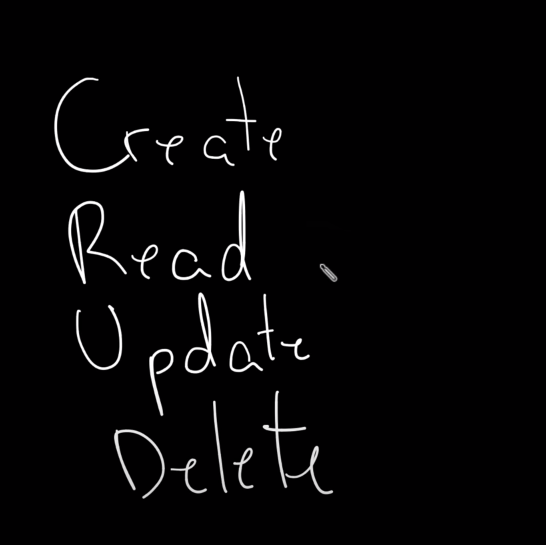 Create
Read
Update
Delete